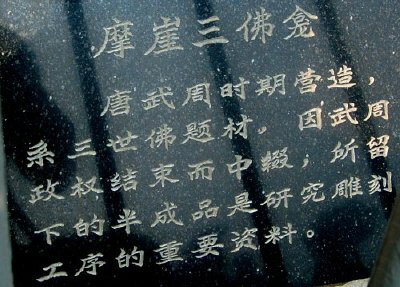 摩崖三佛龛
唐武周时期营造，
系三世佛题材，因武周
政权结束而中辍；所留
下的半成品是研究雕刻
工序的重要资料。